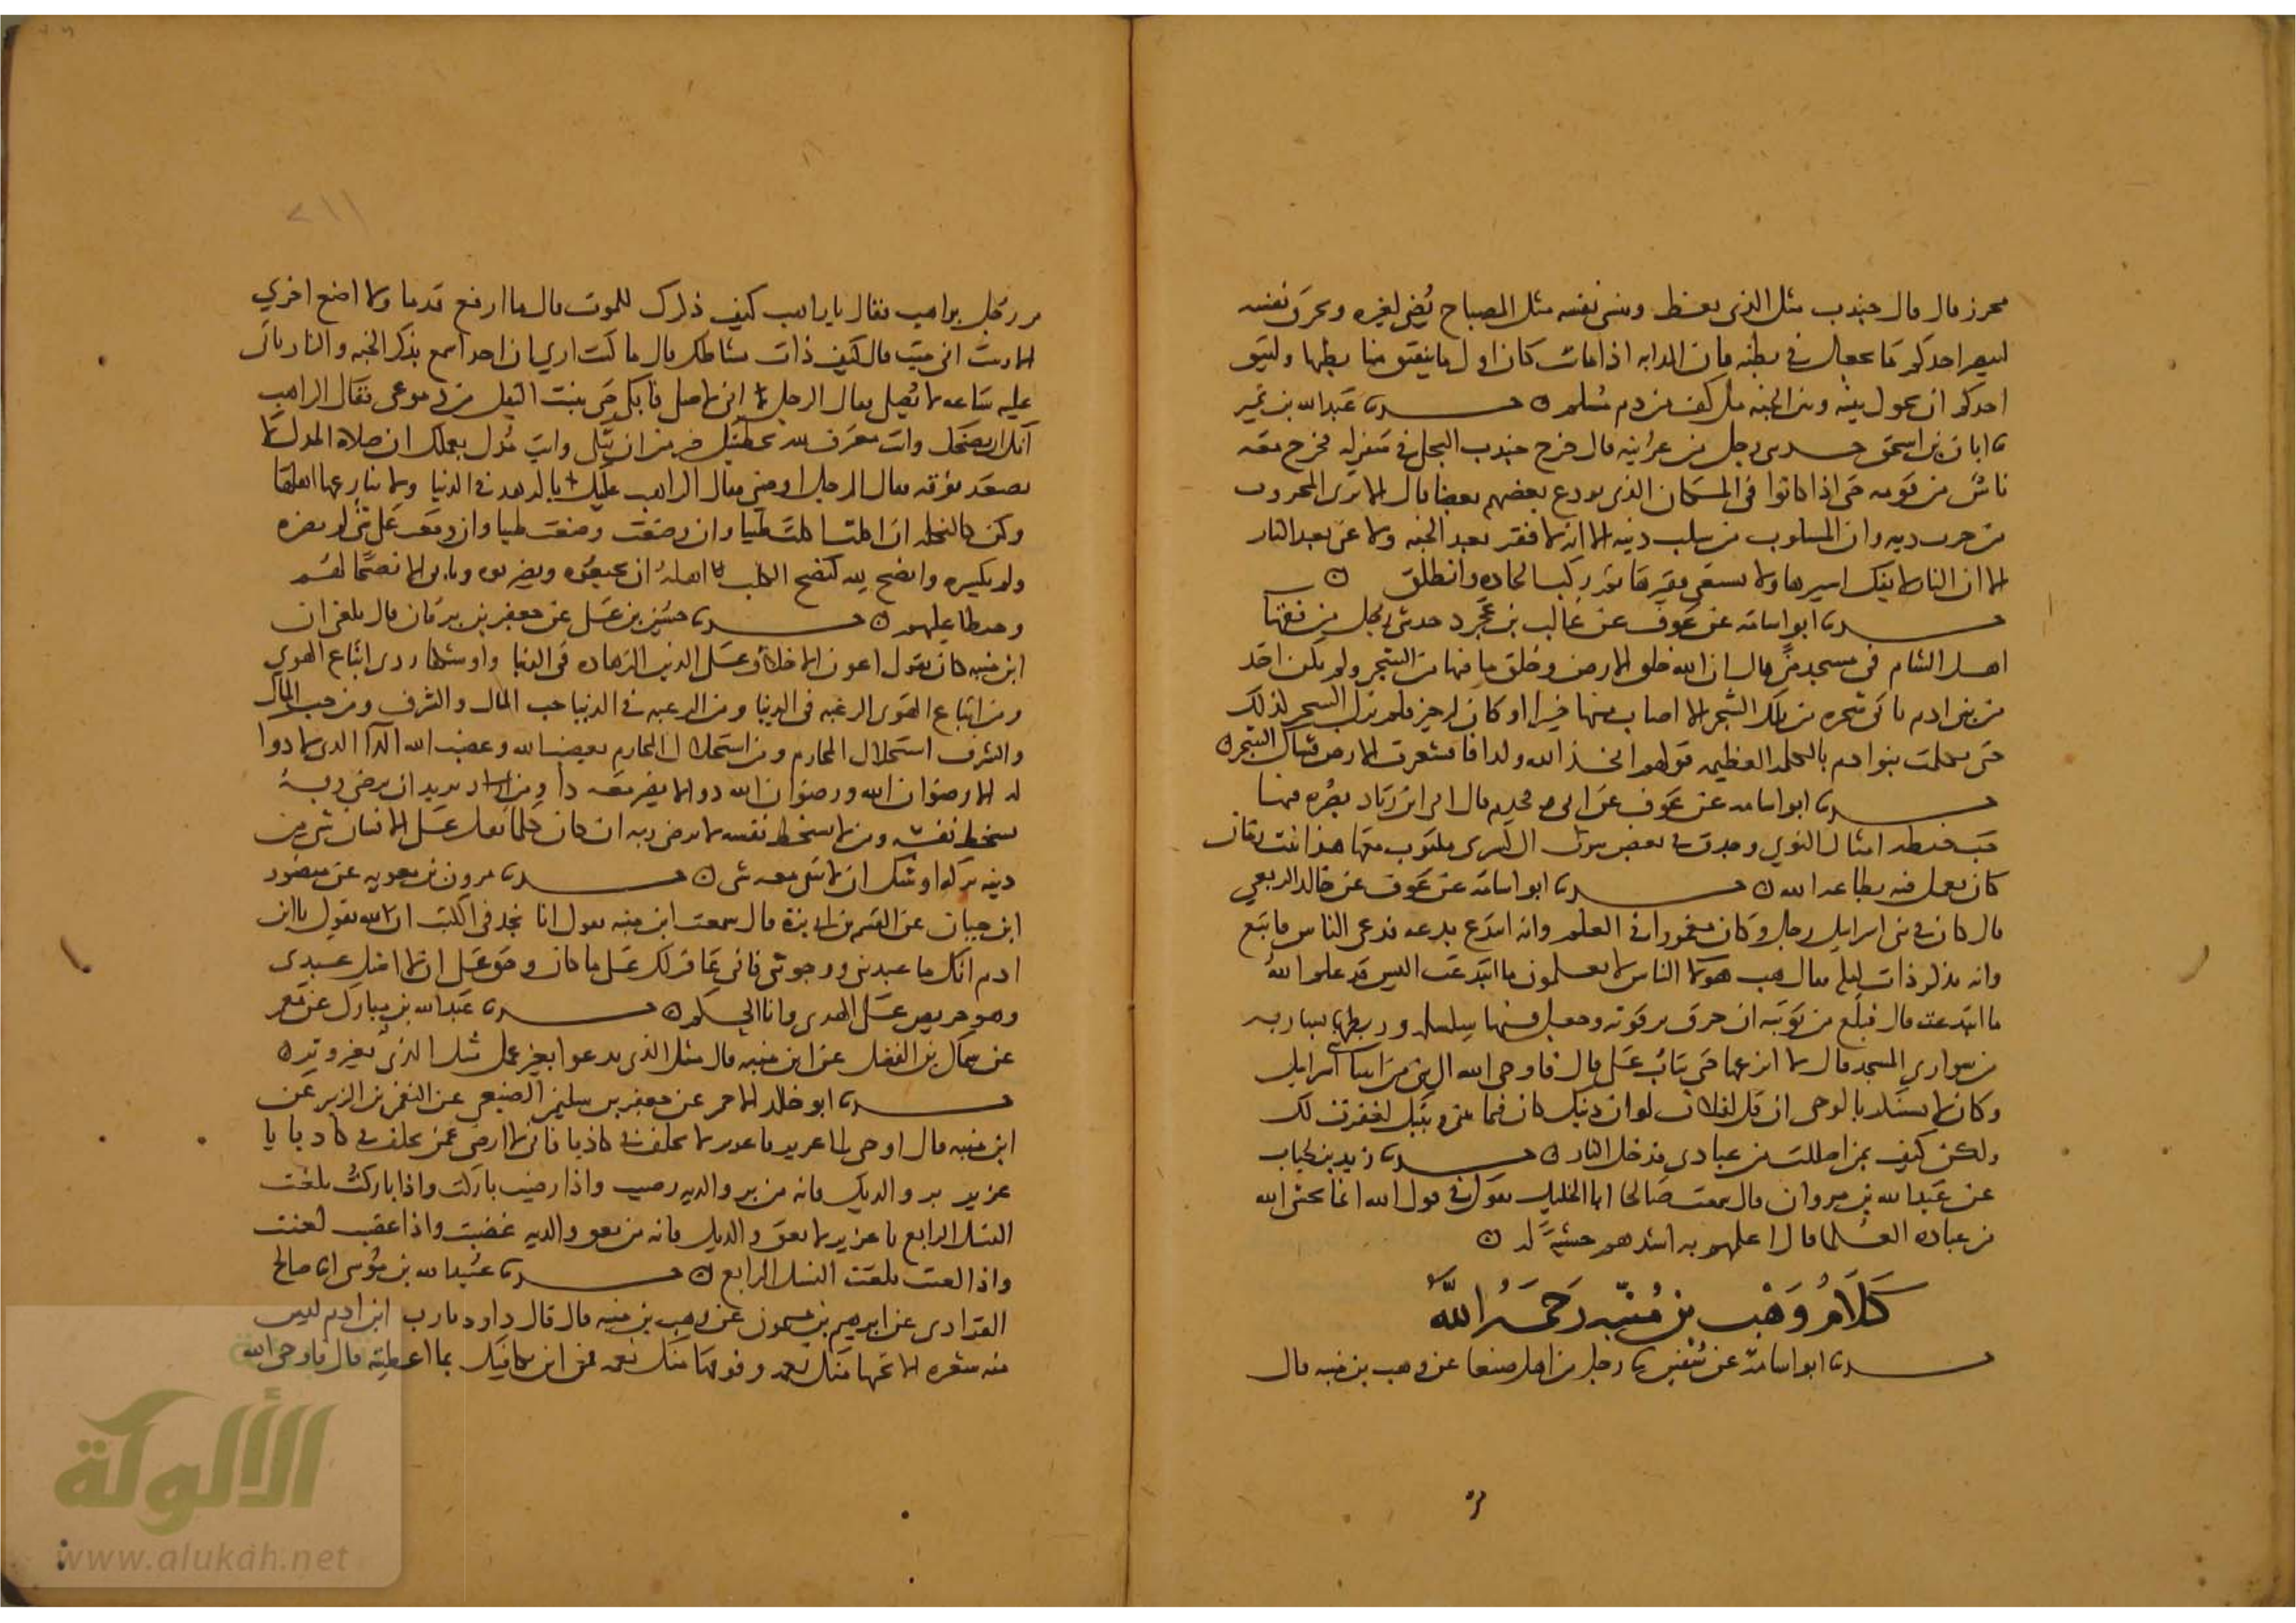 محرز قال قال جندب مثل الذي يعظ وينسى نفسه مثل المصباح يضي لغيره ويحرق نفسه
ليبصر احدكم ما يجعل في بطنه فان الدابه اذا ماتت كان اول ما ينفتق منها بطنها وليتق
احدكم ان يحول بينه وبين الجنه مل كف من دم مسلم ۞ حدثنا عبدالله بن نمير
نا ابان بن اسحق حدثني رجل من عرابيه قال خرج جندب البجلي في سفر له فخرج معه
ناس من قومه حتى اذا كانوا في المكان الذي يودع بعضهم بعضا قال الا ترى المحروب
من حرب دينه وان المسلوب من سلب دينه الا انه لا فقر بعد الجنه ولا غنى بعد النار
الا ان النار لا يفك اسيرها ولا يستغني فقيرها ثم ركب الجاده وانطلق ۞
حدثنا ابو اسامه عن عوف عن غالب بن عجرد حدثني رجل من فقها
اهل الشام في مسجد منى قال ان الله خلق الارض وخلق ما فيها من الشجر ولم يكن احد
من بني ادم ياتي شجره من تلك الشجر الا اصاب منها خيرا او كان له خير فلم تزل الشجر كذلك
حتى تكلمت بنوا ادم بالكلمه العظيمه قولهم اتخذ الله ولدا فاقشعرت الارض فشاك الشجر ۞
حدثنا ابو اسامه عن عوف عن ابي قحذم قال اتي ابن زياد بصره فيها
حب حنطه امثال النوي وجدت في بعض بيوت ال كسرى مكتوب معها هذا نبت زمان
كان يعمل فيه بطاعه الله ۞ حدثنا ابو اسامه عن عوف عن خالد الربعي
قال كان في بني اسرايل رجل وكان مغمورا في العلم وانه ابتدع بدعه فدعى الناس فاتبع
وانه تذكر ذات ليله فقال هب هولا الناس لا يعلمون ما ابتدعت اليس قد علم الله
ما ابتدعته قال فبلغ من توبته ان خرق ترقوته وجعل فيها سلسله وربطها بساريه
من سواري المسجد قال لا انزعها حتى يتاب علي قال فاوحى الله الى نبي من انبيا بني اسرايل
وكان لا يستنكر بالوحي ان قل لفلان لو ان ذنبك كان فيما بيني وبينك لغفرت لك
ولكن كيف بمن اضللت من عبادي فدخل النار ۞ حدثنا زيد بن حباب
عن عبدالله بن مروان قال سمعت صالحا ابا الخليل يقول في قول الله انما يخشى الله
من عباده العلما قال اعلمهم به اشدهم خشيه له ۞
كلام وهب بن منبه رحمه الله
حدثنا ابو اسامه عن سفين نا رجل من اهل صنعا عن وهب بن منبه قال
٢١١
مر رجل براهب فقال يا راهب كيف ذكرك للموت قال ما ارفع قدما ولا اضع اخري
الا رايت اني ميت قال كيف ذات نشاطك قال ما كنت اري ان احدا سمع بذكر الجنه والنار ياتي
عليه ساعه لا يصلي فقال الرجل اني لاصلي فابكي حتى ينبت البقل من دموعي فقال الراهب
انك ان تضحك وانت معترف لله بخطيتك خير من ان تبكي وانت مدل بعملك ان صلاة المدل لا
تصعد فوقه فقال الرجل اوصني فقال الراهب عليك بالزهد في الدنيا ولا تنازعها اهلها
وكن كالنحله ان اكلت اكلت طيبا وان وضعت وضعت طيبا وان وقعت على شي لم تضره
ولم تكسره وانصح لله كنصح الكلب لاهله ان يجيعوه ويضربوه ويابى الا نصحا لهم
وحفظا عليهم ۞ حدثنا حسين بن علي عن جعفر بن برقان قال بلغني ان
ابن منبه كان يقول اعون الاخلاق على الدين الزهاده في الدنيا واوشكها ردى اتباع الهوي
ومن اتباع الهوى الرغبه في الدنيا ومن الرغبه في الدنيا حب المال والشرف ومن حب المال
والشرف استحلال المحارم ومن استحلال المحارم يغضب الله وغضب الله الدا الذي لا دوا
له الا رضوان الله ورضوان الله دوا لا يضر معه دا ومن يريد ان يرضي ربه
يسخط نفسه ومن لا يسخط نفسه لا يرضي ربه ان كان كلما ثقل على الانسان شي من
دينه تركه اوشك ان لا يبقى معه شي ۞ حدثنا مرون بن معويه عن منصور
ابن حيان عن القسم بن ابي بزة قال سمعت ابن منبه يقول انا نجد في الكتب ان الله يقول يا ابن
ادم انك ما عبدتني ورجوتني فاني غافر لك على ما كان وحق علي ان لا اضل عبدي
وهو حريص على الهدى وانا الحكم ۞ حدثنا عبدالله بن مبارك عن معمر
عن سماك بن الفضل عن ابن منبه قال مثل الذي يدعوا بغير عمل مثل الذي بغير وتر ۞
حدثنا ابو خالد الاحمر عن جعفر بن سليمن الضبعي عن النضر بن الزبير عن
ابن منبه قال اوحي الى عزير يا عزير لا تحلف بي كاذبا فاني لا ارضى عمن يحلف بي كاذبا يا
عزير بر والديك فانه من بر والديه رضيت واذا رضيت باركت واذا باركت بلغت
النسل الرابع يا عزير لا تعق والديك فانه من يعق والديه غضبت واذا غضبت لعنت
واذا لعنت بلغت النسل الرابع ۞ حدثنا عبيدالله بن موسى انا صالح
عن ابرهيم بن ميمون عن وهب بن منبه قال قال داود يا رب ابن ادم ليس
منه شعره الا تحتها منك نعمه وفوقها منك نعمه فمن اين يكافيك بما اعطيته قال فاوحى الله
الألوكة
www.alukah.net